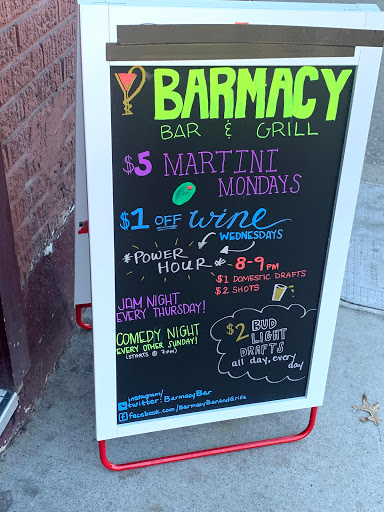 BARMACY
BAR & GRILL
$5 MARTINI
MONDAYS
$1 OFF wine
WEDNESDAYS
*POWER
HOUR* 8-9PM
$1 DOMESTIC DRAFTS
$2 SHOTS
JAM NIGHT
EVERY THURSDAY!
COMEDY NIGHT
EVERY OTHER SUNDAY!
(STARTS @ 7PM)
$2 BUD
LIGHT
DRAFTS
all day, every
day
instagram/
twitter: BarmacyBar
facebook.com/BarmacyBarAndGrille